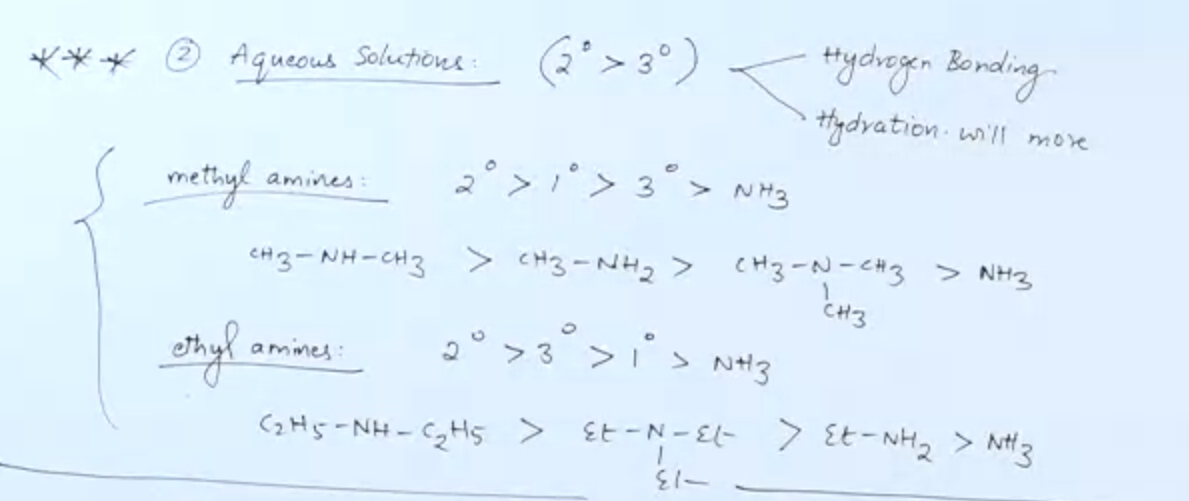 *** ② Aqueous Solutions: (2° > 3°) Hydrogen Bonding
Hydration will more
methyl amines: 2° > 1° > 3° > NH3
CH3-NH-CH3 > CH3-NH2 > CH3-N-CH3 > NH3
CH3
ethyl amines: 2° > 3° > 1° > NH3
C2H5-NH-C2H5 > Et-N-Et > Et-NH2 > NH3
Et